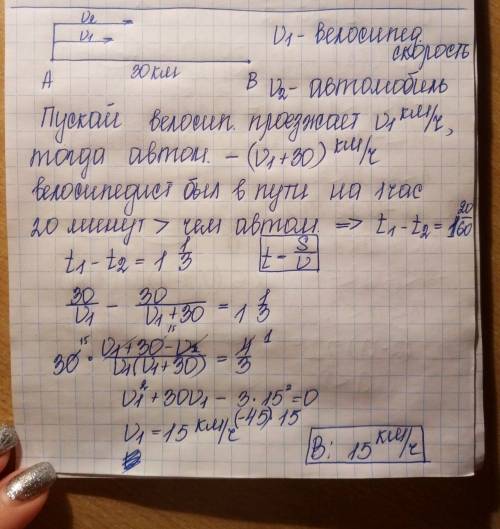 V₂
V₁
V₁ - велосипед
скорость
A 30 км B
V₂ - автомобиль
Пускай велосип. проезжает V₁ км/ч,
тогда автом. – (V₁+30) км/ч
велосипедист был в пути на 1 час
20 минут > чем автом. => t₁ - t₂ = 1 20/60
t₁ - t₂ = 1 1/3 t - S/V
30/V₁ - 30/(V₁+30) = 1 1/3
30 · (V₁+30-V₁)/(V₁(V₁+30)) = 4/3
V₁² + 30V₁ - 3·15² = 0
V₁ = 15 км/ч (-45) 15
В: 15 км/ч